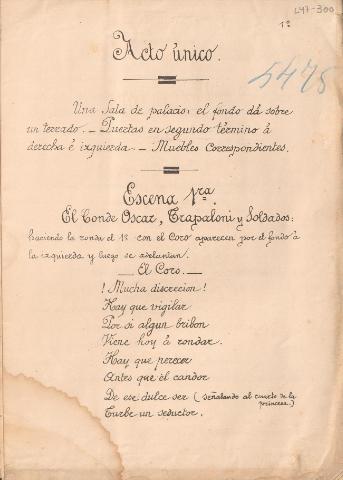 L47-300
1º
Acto único.
5475
Una Sala de palacio: el fondo dá sobre
un terrado._ Puertas en segundo término á
derecha é izquierda._ Muebles Correspondientes.
Escena 1ra.
El Conde Oscar, Trapaloni y Soldados:
haciendo la ronda el 1º con el Coro aparecen por el fondo á
la izquierda y luego se adelantan.
_ El Coro. _
! Mucha discrecion!
Hay que vigilar
Por si algun bribon
Viene hoy á rondar.
Hay que perecer
Antes que el candor
De ese dulce ser (señalando al cuarto de la
princesa.)
Turbe un seductor.